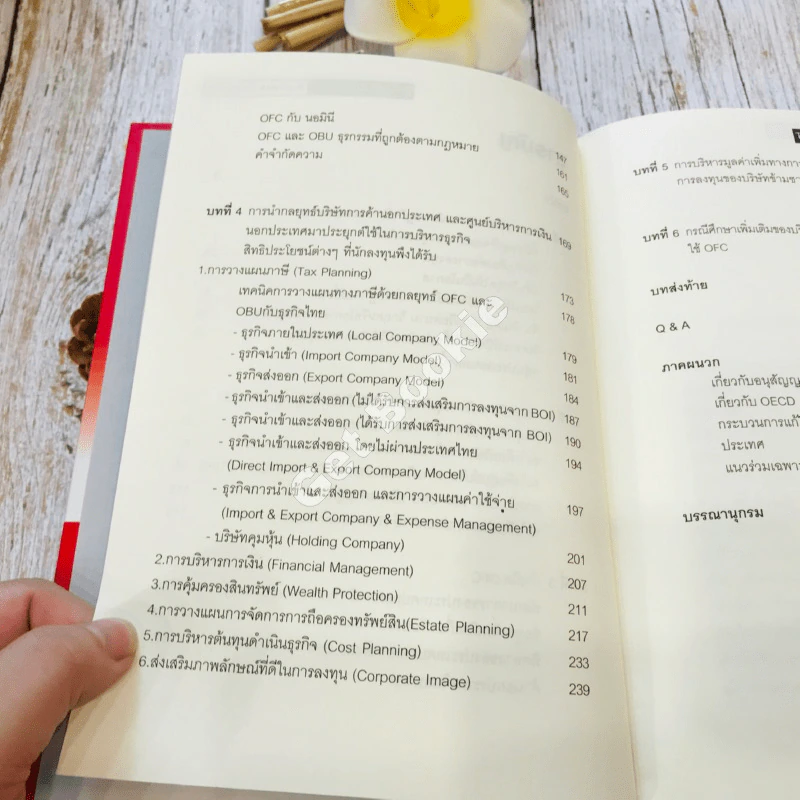 OFC กับ นอมินี
OFC และ OBU ธุรกรรมที่ถูกต้องตามกฎหมาย 147
คำจำกัดความ 161
165
บทที่ 4 การนำกลยุทธ์บริษัทการค้านอกประเทศ และศูนย์บริหารการเงิน
นอกประเทศมาประยุกต์ใช้ในการบริหารธุรกิจ 169
สิทธิประโยชน์ต่างๆ ที่นักลงทุนพึงได้รับ
1.การวางแผนภาษี (Tax Planning)
เทคนิคการวางแผนทางภาษีด้วยกลยุทธ์ OFC และ 173
OBUกับธุรกิจไทย 178
- ธุรกิจภายในประเทศ (Local Company Model)
- ธุรกิจนำเข้า (Import Company Model) 179
- ธุรกิจส่งออก (Export Company Model) 181
- ธุรกิจนำเข้าและส่งออก (ไม่ได้รับการส่งเสริมการลงทุนจาก BOI) 184
- ธุรกิจนำเข้าและส่งออก (ได้รับการส่งเสริมการลงทุนจาก BOI) 187
- ธุรกิจนำเข้าและส่งออก โดยไม่ผ่านประเทศไทย 190
(Direct Import & Export Company Model) 194
- ธุรกิจการนำเข้าและส่งออก และการวางแผนค่าใช้จ่าย
(Import & Export Company & Expense Management) 197
- บริษัทคุมหุ้น (Holding Company)
2.การบริหารการเงิน (Financial Management) 201
3.การคุ้มครองสินทรัพย์ (Wealth Protection) 207
4.การวางแผนการจัดการการถือครองทรัพย์สิน(Estate Planning) 211
5.การบริหารต้นทุนดำเนินธุรกิจ (Cost Planning) 217
6.ส่งเสริมภาพลักษณ์ที่ดีในการลงทุน (Corporate Image) 233
239
บทที่ 5 การบริหารมูลค่าเพิ่มทางการ
การลงทุนของบริษัทข้ามชา
บทที่ 6 กรณีศึกษาเพิ่มเติมของบริ
ใช้ OFC
บทส่งท้าย
Q & A
ภาคผนวก
เกี่ยวกับอนุสัญญ
เกี่ยวกับ OECD
กระบวนการแก้
ประเทศ
แนวร่วมเฉพาะ
บรรณานุกรม
Get Bookie